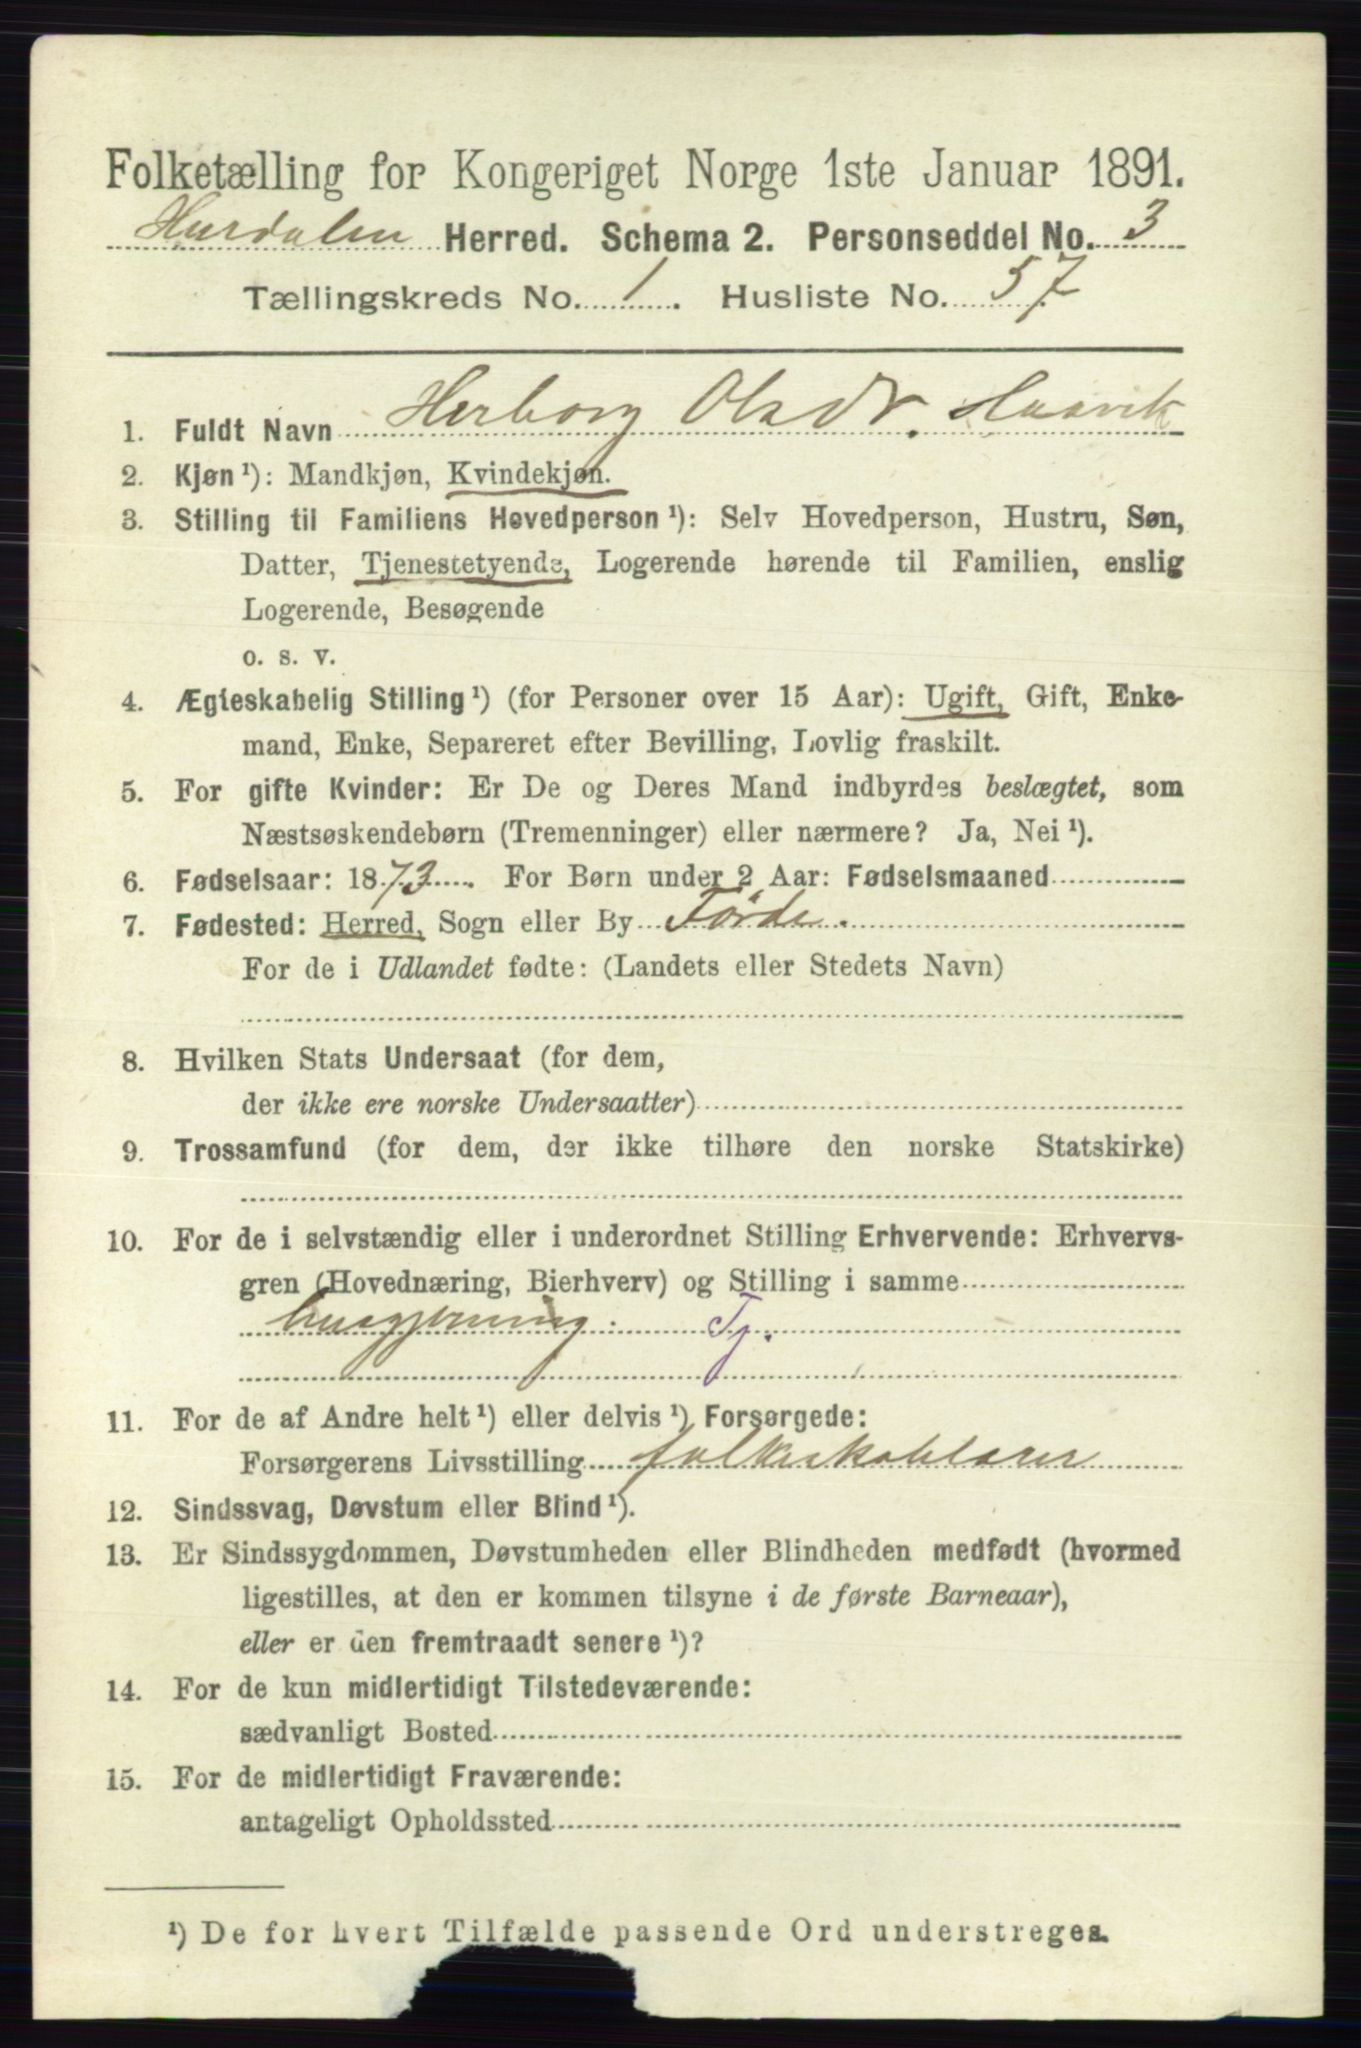 Folketælling for Kongeriget Norge 1ste Januar 1891.
Hurdalen Herred. Schema 2. Personseddel No. 3
Tællingskreds No. 1. Husliste No. 57
1. Fuldt Navn Herborg Olsdr. Haavik
2. Kjøn¹): Mandkjøn, Kvindekjøn.
3. Stilling til Familiens Hovedperson¹): Selv Hovedperson, Hustru, Søn,
Datter, Tjenestetyende, Logerende hørende til Familien, enslig
Logerende, Besøgende
o. s. v.
4. Ægteskabelig Stilling¹) (for Personer over 15 Aar): Ugift, Gift, Enke-
mand, Enke, Separeret efter Bevilling, Lovlig fraskilt.
5. For gifte Kvinder: Er De og Deres Mand indbyrdes beslægtet, som
Næstsøskendebørn (Tremenninger) eller nærmere? Ja, Nei¹).
6. Fødselsaar: 1873. For Børn under 2 Aar: Fødselsmaaned
7. Fødested: Herred, Sogn eller By Förde.
For de i Udlandet fødte: (Landets eller Stedets Navn)
8. Hvilken Stats Undersaat (for dem,
der ikke ere norske Undersaatter)
9. Trossamfund (for dem, der ikke tilhøre den norske Statskirke)
10. For de i selvstændig eller i underordnet Stilling Erhvervende: Erhvervs-
gren (Hovednæring, Bierhverv) og Stilling i samme
husgjerning. Tj.
11. For de af Andre helt¹) eller delvis¹) Forsørgede:
Forsørgerens Livsstilling folkeskolelærer
12. Sindssvag, Døvstum eller Blind¹).
13. Er Sindssygdommen, Døvstumheden eller Blindheden medfødt (hvormed
ligestilles, at den er kommen tilsyne i de første Barneaar),
eller er den fremtraadt senere¹)?
14. For de kun midlertidigt Tilstedeværende:
sædvanligt Bosted
15. For de midlertidigt Fraværende:
antageligt Opholdssted
¹) De for hvert Tilfælde passende Ord understreges.